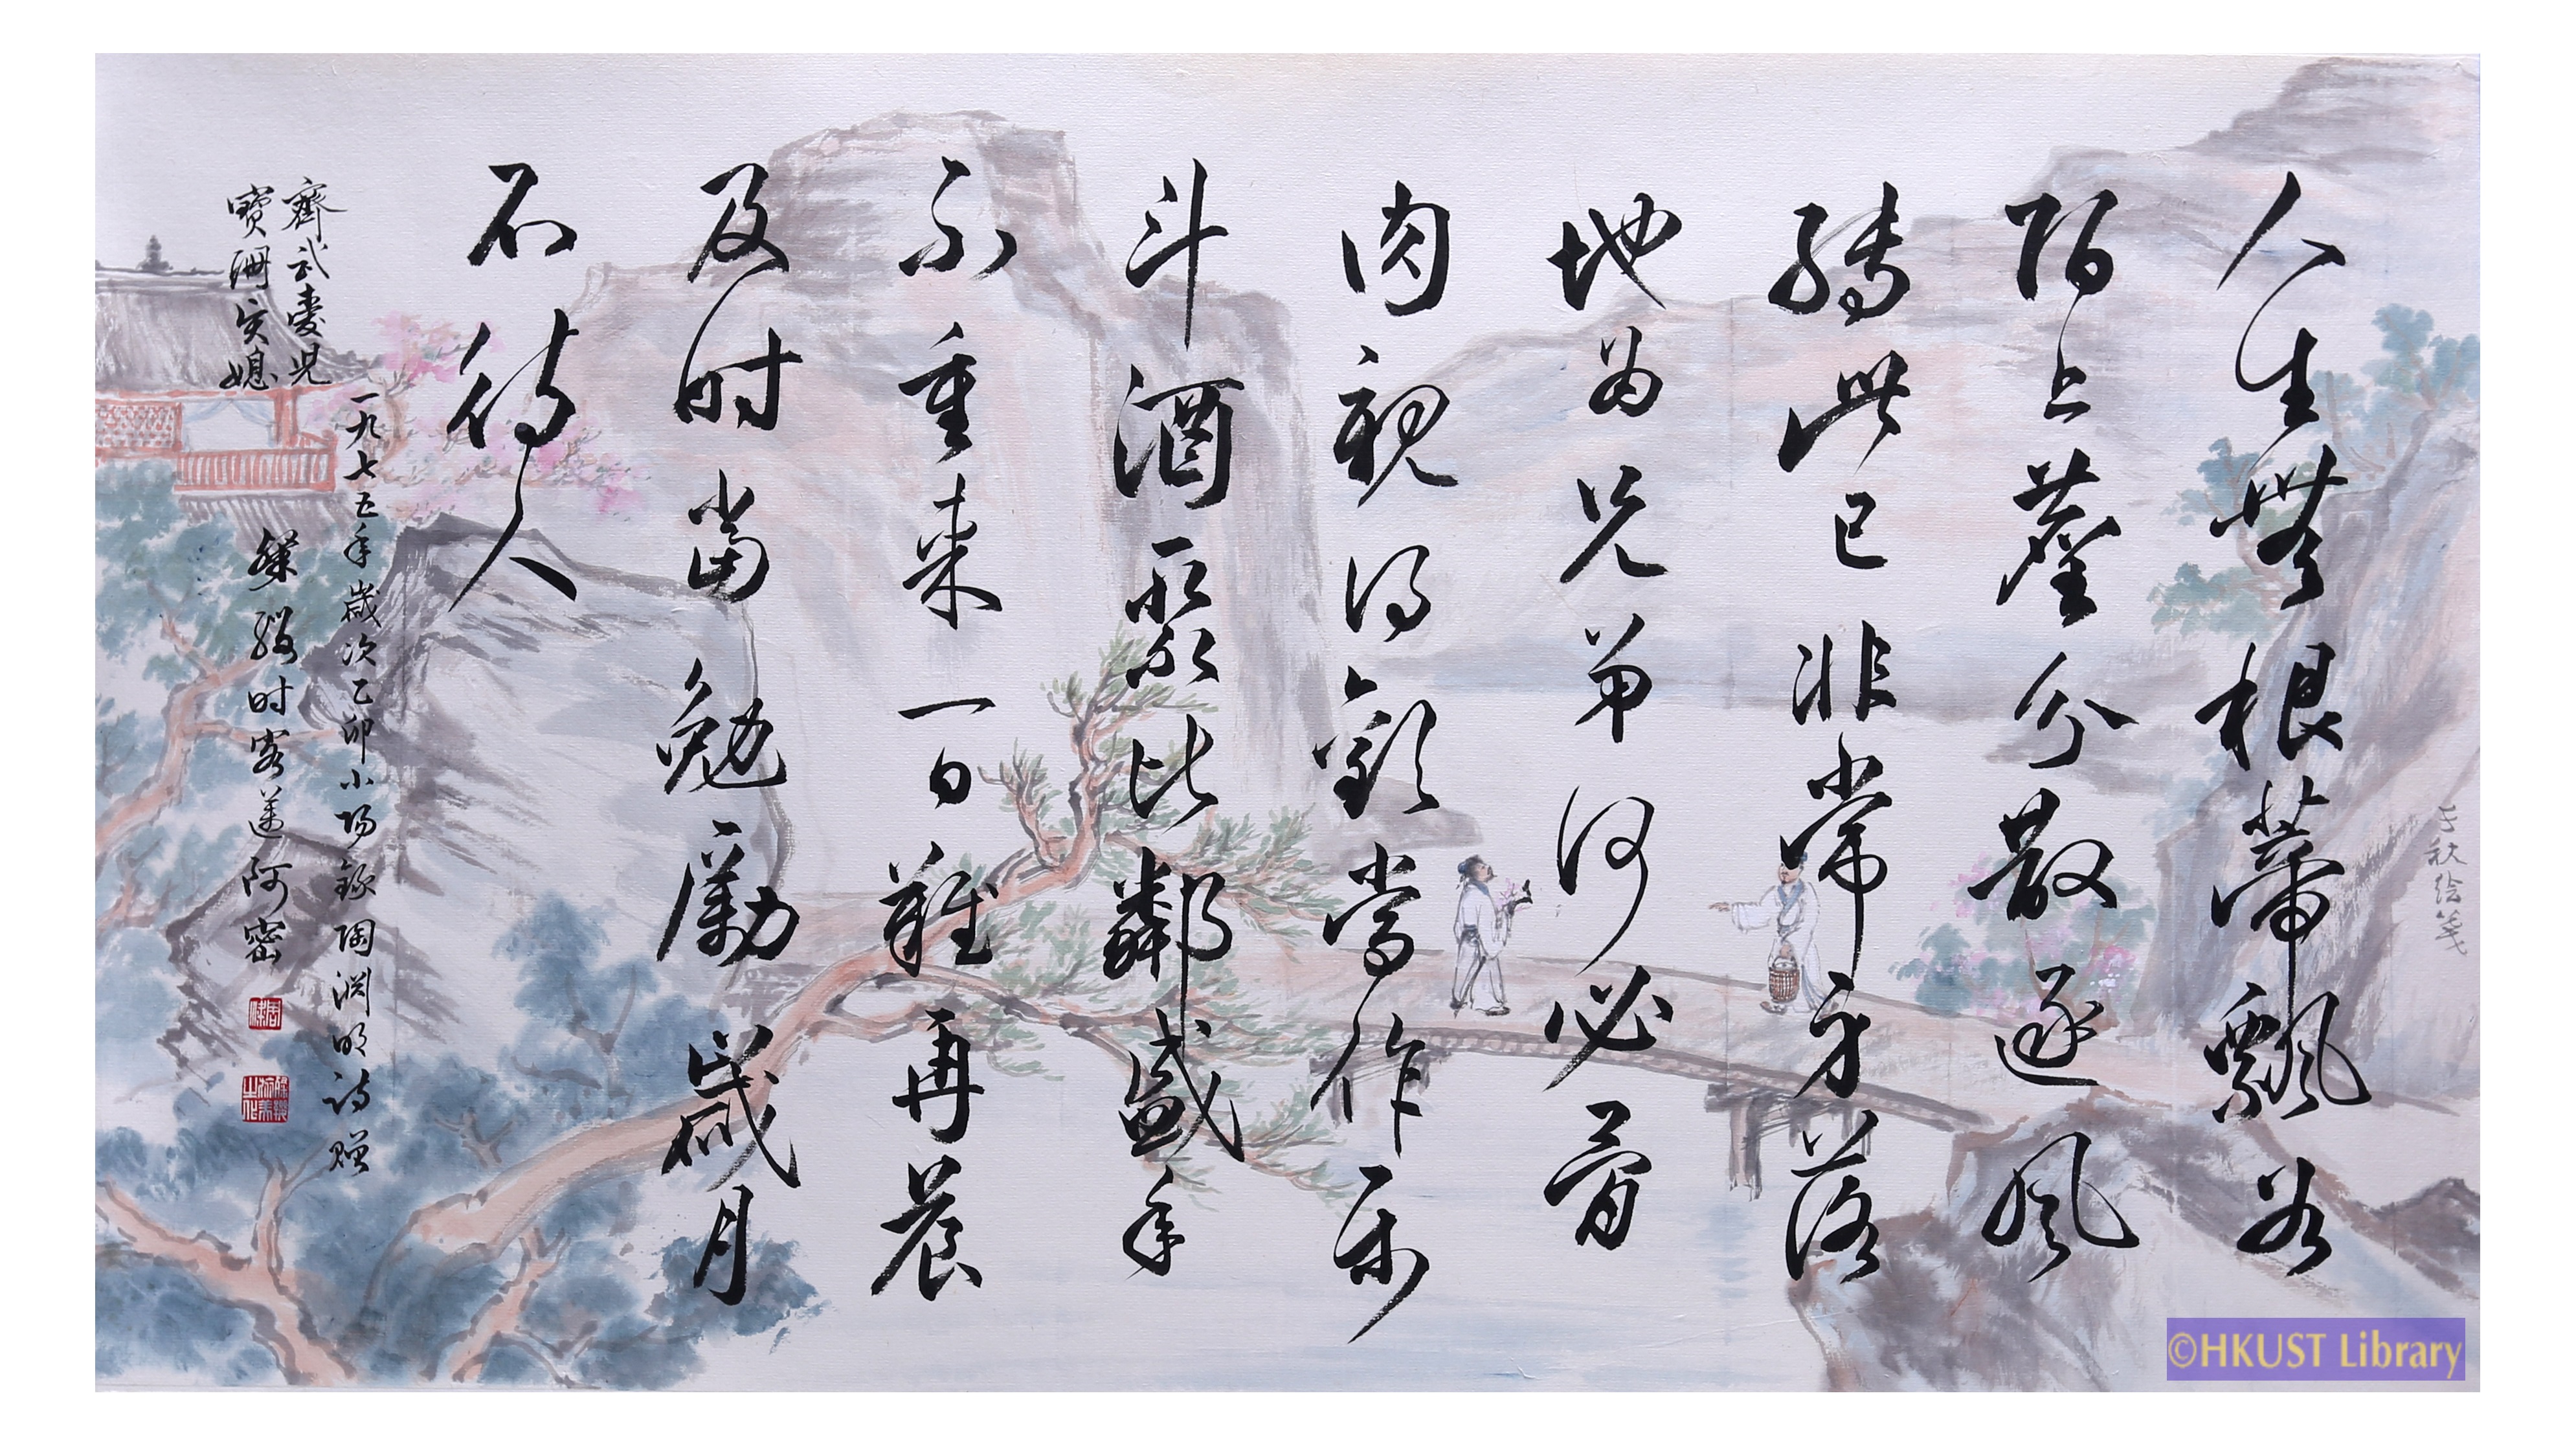 秋绘笺
人生無根蒂飄如
陌上塵分散逐風
轉此已非常身落
地为兄弟何必骨
肉親得歡當作樂
斗酒聚比鄰盛年
不重来一日難再晨
及时當勉勵歲月
不待人
一九七五年歲次乙卯小陽錄陶淵明诗贈
齊武愛兒
寶珊賢媳
时客遊阿密
©HKUST Library